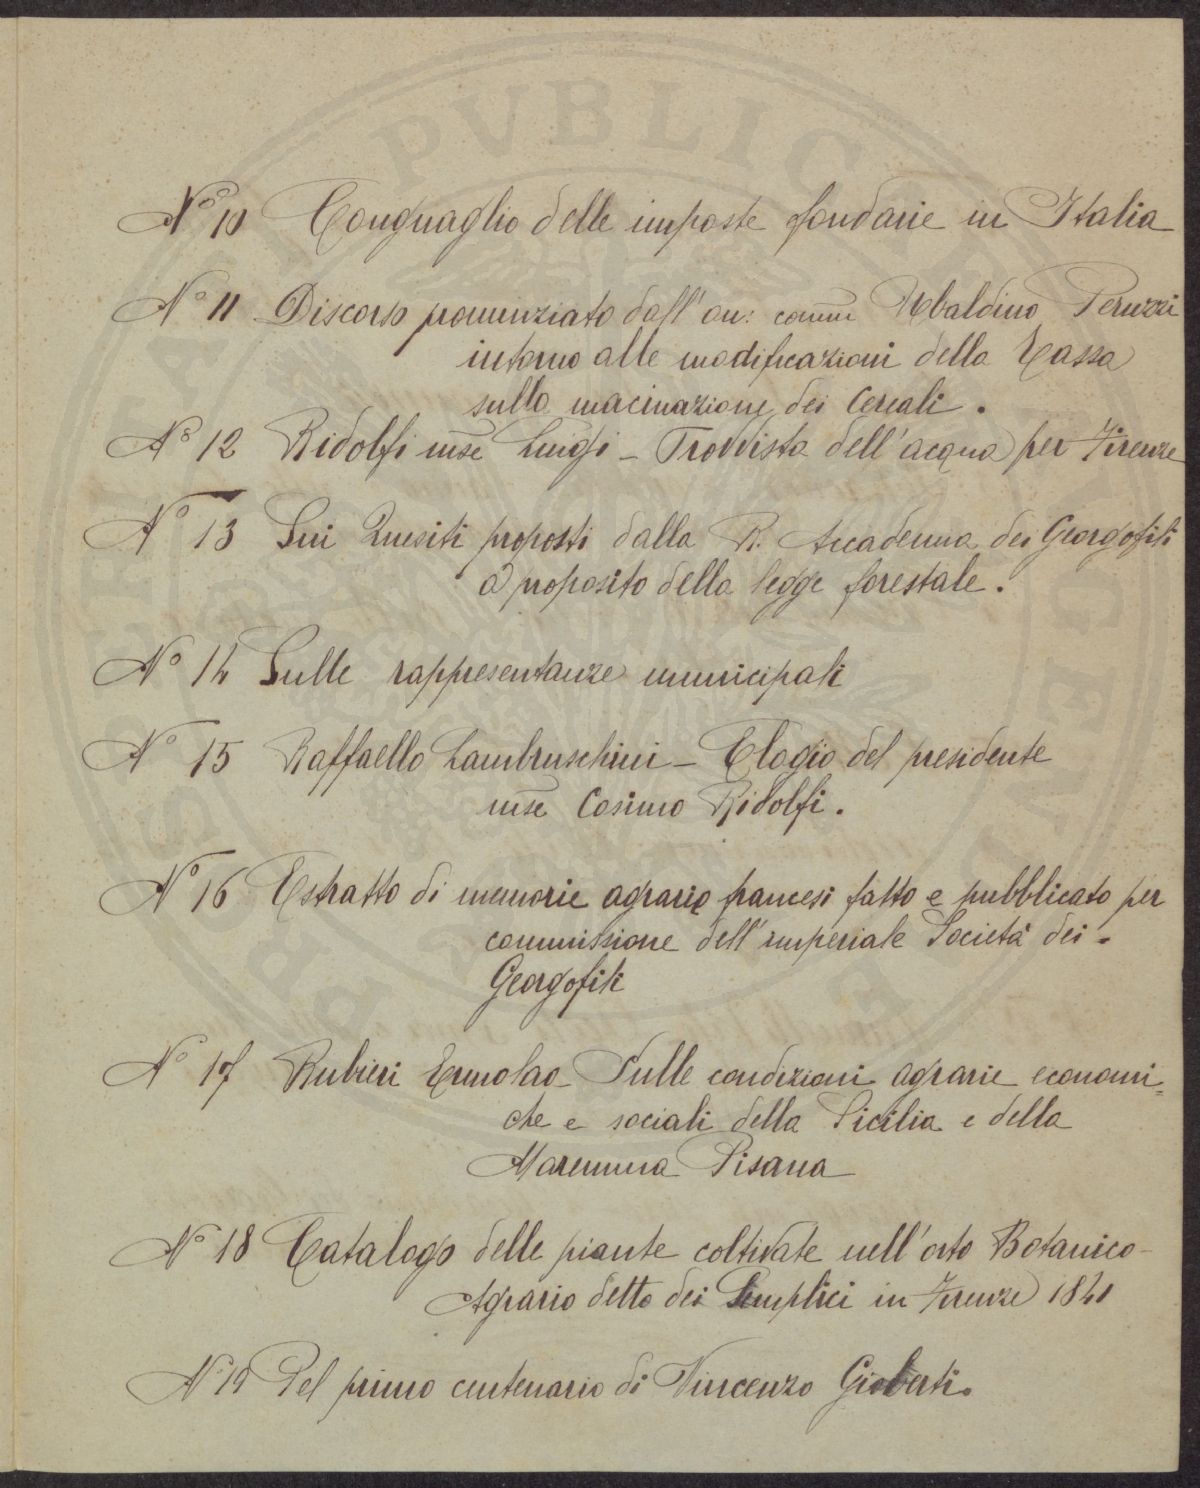 PVBLIC
N.° 10 Conguaglio delle imposte fondarie in Italia
N.° 11 Discorso pronunziato dall' on: comm Ubaldino Peruzzi
intorno alle modificazioni della Tassa
sulla macinazione dei Cereali.
N.° 12 Ridolfi mse Luigi - Provvista dell'acqua per Firenze
N.° 13 Sui Quesiti proposti dalla R. Accademia dei Georgofili
a proposito della legge forestale.
N.° 14 Sulle rappresentanze municipali
N.° 15 Raffaello Lambruschini - Elogio del presidente
mse Cosimo Ridolfi.
N.° 16 Estratto di memorie agrarie francesi fatto e pubblicato per
commissione dell'imperiale Società dei
Georgofili
N.° 17 Rubieri Ermolao - Sulle condizioni agrarie economi=
che e sociali della Sicilia e della
Maremma Pisana
N.° 18 Catalogo delle piante coltivate nell'orto Botanico-
Agrario detto dei Semplici in Firenze 1841
N. 19 Pel primo centenario di Vincenzo Gioberti.